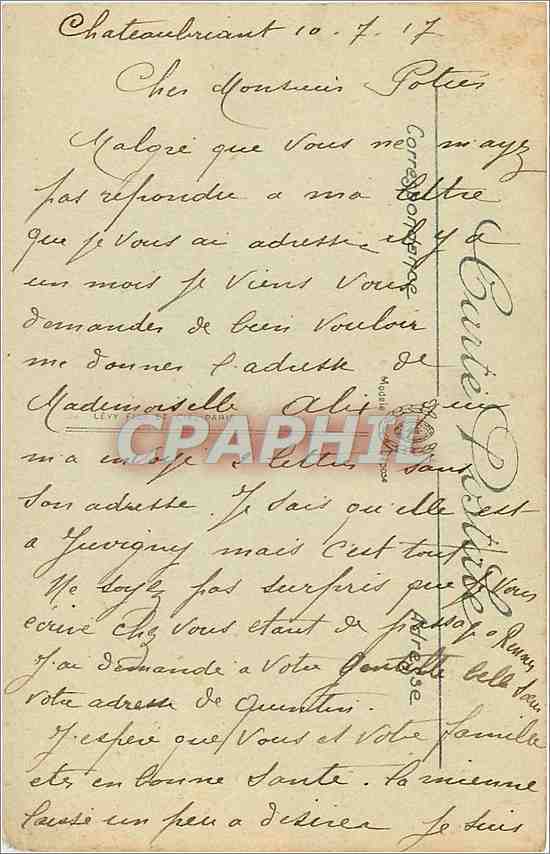 Chateaubriant 10-7-17
Cher Monsieur Potier
Malgré que vous ne m'ayez
pas repondu a ma lettre
que je vous ai adresse il y a
un mois je viens vous
demander de bien vouloir
me donner l'adresse de
Mademoiselle Alix qui
m'a envoyé 2 lettres sans
son adresse. Je sais qu'elle est
a Juvigny mais c'est tout
Ne soyez pas surpris que je vous
écrive chez vous etant de passage a Rennes
J'ai demandé a votre gentille belle soeur
votre adresse de Quentin.
J'espère que vous et votre famille
etes en bonne santé. La mienne
laisse un peu a désirer je suis
Carte Postale
Correspondance
Adresse
CPAPHIL